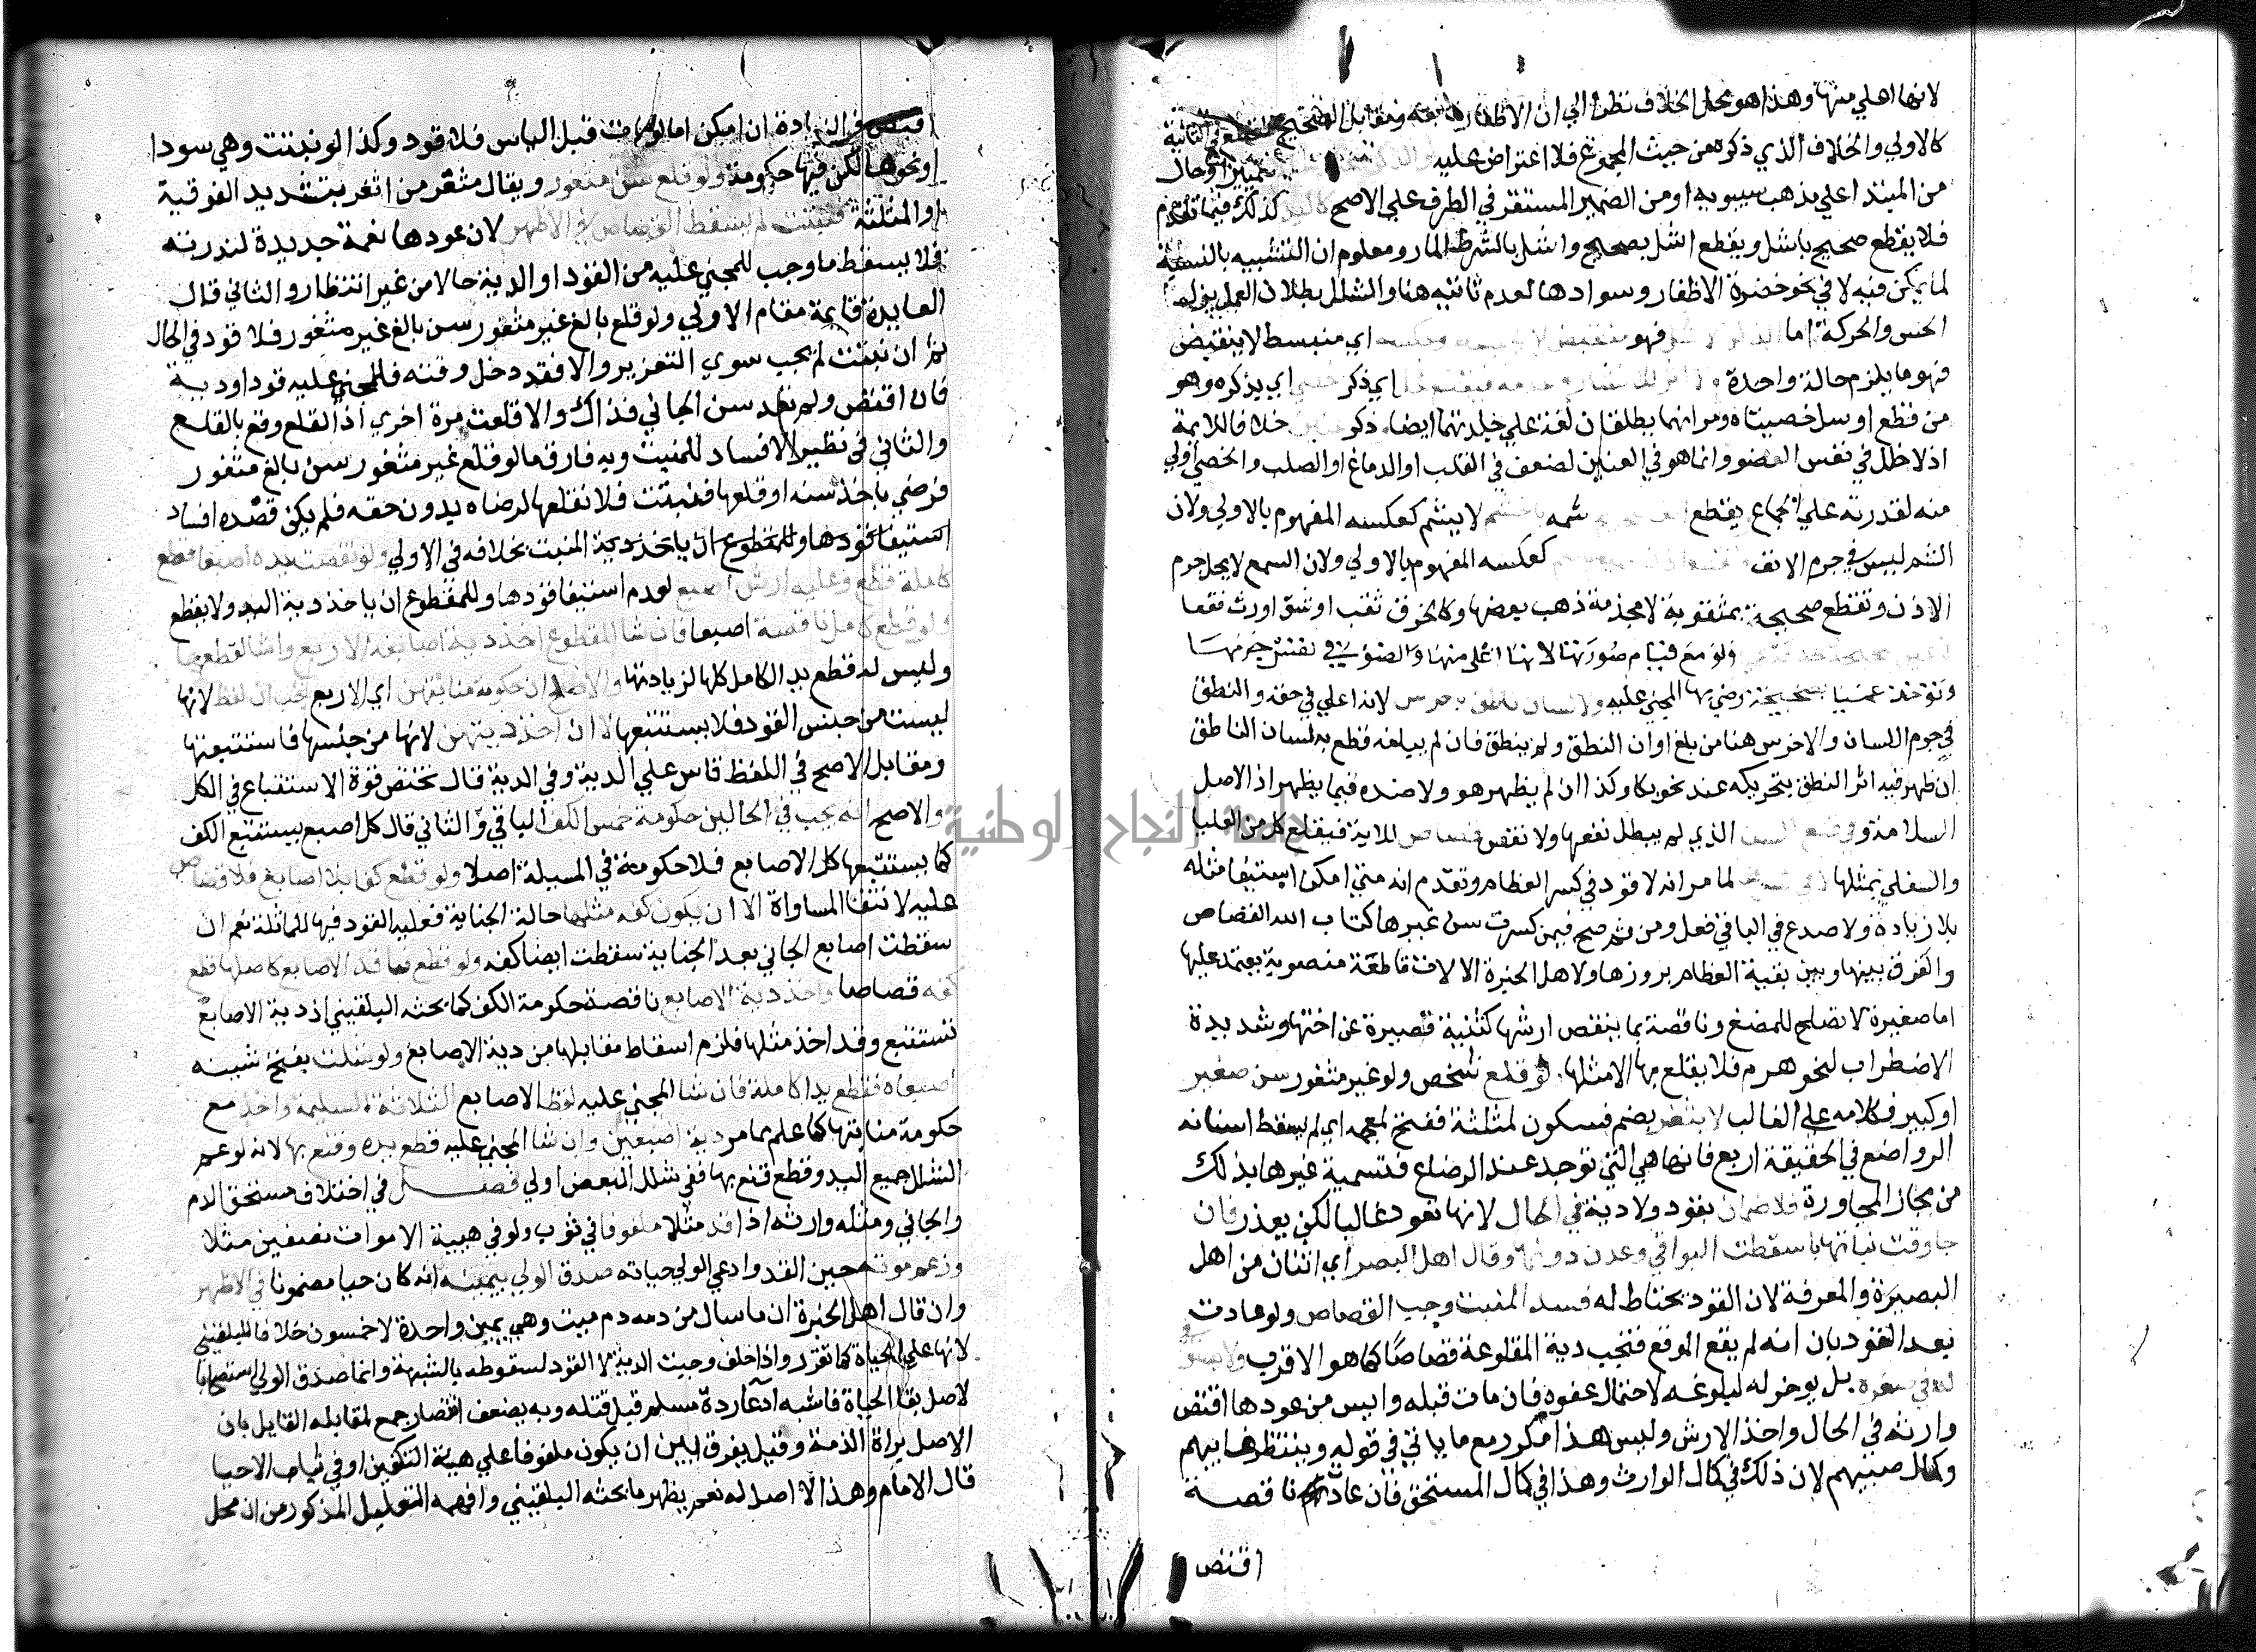 لانها اعلي منها وهذا هو محل الخلاف نظرا الي ان الاظفار تابعة ومقابل الصحيح
كالاولي والخلاف الذي ذكره من حيث المجموع فلا اعتراض عليه تمييز او حال
من المبتدا علي مذهب سيبويه او من الضمير المستقر في الظرف علي الاصح كاليد كذلك فيما تقدم
فلا يقطع صحيح باشل ويقطع اشل بصحيح واشل بالشرط المار ومعلوم ان التشبيه بالنسبة
لما يمكن فيه لا في نحو خضرة الاظفار وسوادها لعدم تاتيه هنا والشلل بطلان العمل بزوال
الحس والحركة اما فهو منقبض لا اي منبسط لا ينقبض
فهو ما يلزم حالة واحدة اي ذكر اي بذكره وهو
من قطع او سل خصيتاه ومر انهما يطلقان لغة علي جلدتهما ايضا ذكر خلافا للايمة
اذ لا خلل في نفس العضو وانما هو في العنين لضعف في القلب او الدماغ او الصلب والخصي اولي
منه لقدرته علي الجماع ويقطع شمه لا يشم كعكسه المفهوم بالاولي ولان
الشم ليس في جرم الانف كعكسه المفهوم بالاولي ولان السمع لا يحل جرم
الاذن وتقطع صحيحة بمثقوبة لا مجذمة ذهب بعضها وكالخرق ثقب او شق اورث نقصا
ولو مع قيام صورتها لانها اعلي منها والضوء في نفس جرمها
وتوخذ عميا بصحيحة رضي بها المجني عليه ولا لسان ناطق باخرس لانه اعلي في حقه والنطق
في جرم اللسان والاخرس هنا من بلغ اوان النطق ولم ينطق فان لم يبلغه قطع به لسان الناطق
ان ظهر فيه اثر النطق بتحريكه عند نحو بكا وكذا ان لم يظهر هو ولا ضده فيما يظهر اذ الاصل
السلامة وفي قلع السن الذي لم يبطل نفعها ولا نقص قصاص للاية فيقلع كل من العليا
والسفلي بمثلها لما مر انه لا قود في كسر العظام وتقدم انه متي امكن استيفا مثله
بلا زيادة ولا صدع في الباقي فعل ومن ثم صح فيمن كسرت سن غيرها كتاب الله القصاص
والفرق بينها وبين بقية العظام بروزها ولاهل الخبرة الات قاطعة منصوبة يعتمد عليها
اما صغيرة لا تصلح للمضغ وناقصة بما ينقص ارشها كثنية قصيرة عن اختها وشديدة
الاضطراب لنحو هرم فلا يقلع بها الا مثلها ولو قلع شخص ولو غير مثغور سن صغير
او كبير فكلامه علي الغالب لا يثغر بضم فسكون لمثلثة ففتح لمعجمة اي لم يسقط اسنانه
الرواضع في الحقيقة اربع فانها هي التي توجد عند الرضاع فتسمية غيرها بذلك
من مجاز المجاورة فلا ضمان بقود ولا دية في الحال لانها تعود غالبا لكن يعذر فان
جا وقت نباتها بان سقطت البواقي وعدن دونها وقال اهل البصر اي اثنان من اهل
البصيرة والمعرفة لان القود يحتاط له فسد المنبت وجب القصاص ولو عادت
بعد القود بان انه لم يقع الموقع فتجب دية المقلوعة قصاصا كما هو الاقرب ولا يستوفي
له في صغره بل يوخر له لبلوغه لاحتمال عفوه فان مات قبله وايس من عودها اقتص
وارثه في الحال واخذ الارش وليس هذا مكرر مع ما ياتي في قوله وينتظر غايبهم
وكمال صبيهم لان ذلك في كمال الوارث وهذا في كمال المستحق فان عادت ناقصة
اقتص
اقتص في الزيادة ان امكن اما لو مات قبل الياس فلا قود وكذا لو نبتت وهي سودا
او نحوها لكن فيها حكومة ولو قلع سن مثغور ويقال مثغر من اثغر بتشديد الفوقية
او المثلثة فنبتت لم يسقط القصاص في الاظهر لان عودها نعمة جديدة لندرته
فلا يسقط ما وجب للمجني عليه من القود او الدية حالا من غير انتظار والثاني قال
العايدة قايمة مقام الاولي ولو قلع بالغ غير مثغور سن بالغ غير مثغور فلا قود في الحال
ثم ان نبتت لم يجب سوي التعزير والا فقد دخل وقته فللمجني عليه قود او دية
فان اقتص ولم تعد سن الجاني فذاك والا قلعت مرة اخري اذ القلع وقع بالقلع
والثاني في نظير الافساد للمنبت وبه فارق ما لو قلع غير مثغور سن بالغ مثغور
فرضي باخذ سنه او قلعها فنبتت فلا نقلعها لرضاه بدون حقه فلم يكن قصده افساد
استيفا قودها وللمقطوع ان ياخذ دية المنبت بخلافه في الاولي ولو نقصت يده اصبعا فقطع
كاملة قطع وعليه ارش اصبع لعدم استيفا قودها وللمقطوع ان ياخذ دية اليد ولا يقطع
ولو قطع كامل ناقصة اصبعا فان شا المقطوع اخذ دية اصابعه الاربع وان شا لقطعها
وليس له قطع يد الكامل كلها لزيادتها والاصح ان حكومة منابتهن اي الاربع تجب ان لقط لانها
ليست من جنس القود فلا يستتبعها لا ان اخذ ديتهن لانها من جنسها فاستتبعتها
ومقابل الاصح في اللقط قاس علي الدية وفي الدية قال تختص قوة الاستتباع في الكل
والاصح انه يجب في الحالين حكومة خمس الكف الباقي والثاني قال كل اصبع يستتبع الكف
كما يستتبعها كل الاصابع فلا حكومة في المسيلة اصلا ولو قطع كفا بلا اصابع فلا قصاص
عليه لانتفا المساواة الا ان يكون كفه مثلها حالة الجناية فعليه القود فيها للمماثلة نعم ان
سقطت اصابع الجاني بعد الجناية سقطت ايضا كفه ولو قطع فاقد الاصابع كاملها قطع
كفه قصاصا واخذ دية الاصابع ناقصة حكومة الكف كما بحثه البلقيني اذ دية الاصابع
تستتبع وقد اخذ مثلها فلزم اسقاط مقابلها من دية الاصابع ولو شلت بفتح شينه
اصبعاه فقطع يدا كاملة فان شا المجني عليه لقط الاصابع الثلاثة السليمة واخذ مع
حكومة منابتها كما علم بما مر دية اصبعين وان شا المجني عليه قطع يده وقنع بها لانه لو عم
الشلل جميع اليد وقطع قنع بها ففي شلل البعض اولي فصل في اختلاف مستحق الدم
والجاني ومثله وارثه اذا قد مثلا ملفوفا في ثوب ولو في هيية الاموات نصفين مثلا
وزعم موته حين القد وادعي الولي حياته صدق الولي بيمينه انه كان حيا مضمونا في الاظهر
وان قال اهل الخبرة ان ما سال من دمه دم ميت وهي يمين واحدة لا خمسون خلافا للبلقيني
لانها علي الحياة كما تقرر واذا حلف وجبت الدية لا القود لسقوطه بالشبهة وانما صدق الولي استصحابا
لاصل بقا الحياة فاشبه ادعا ردة مسلم قبل قتله وبه يضعف انتصار جمع لمقابله القايل بان
الاصل براة الذمة وقيل يفرق بين ان يكون ملفوفا علي هيية التكفين او في ثياب الاحيا
قال الامام وهذا لا اصل له نعم يظهر ما بحثه البلقيني وافهمه التعليل المذكور من ان محل
جامعة النجاح الوطنية